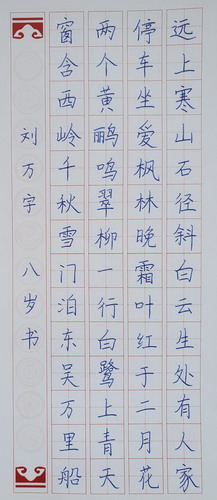 远上寒山石径斜白云生处有人家
停车坐爱枫林晚霜叶红于二月花
两个黄鹂鸣翠柳一行白鹭上青天
窗含西岭千秋雪门泊东吴万里船
刘万字 八岁书